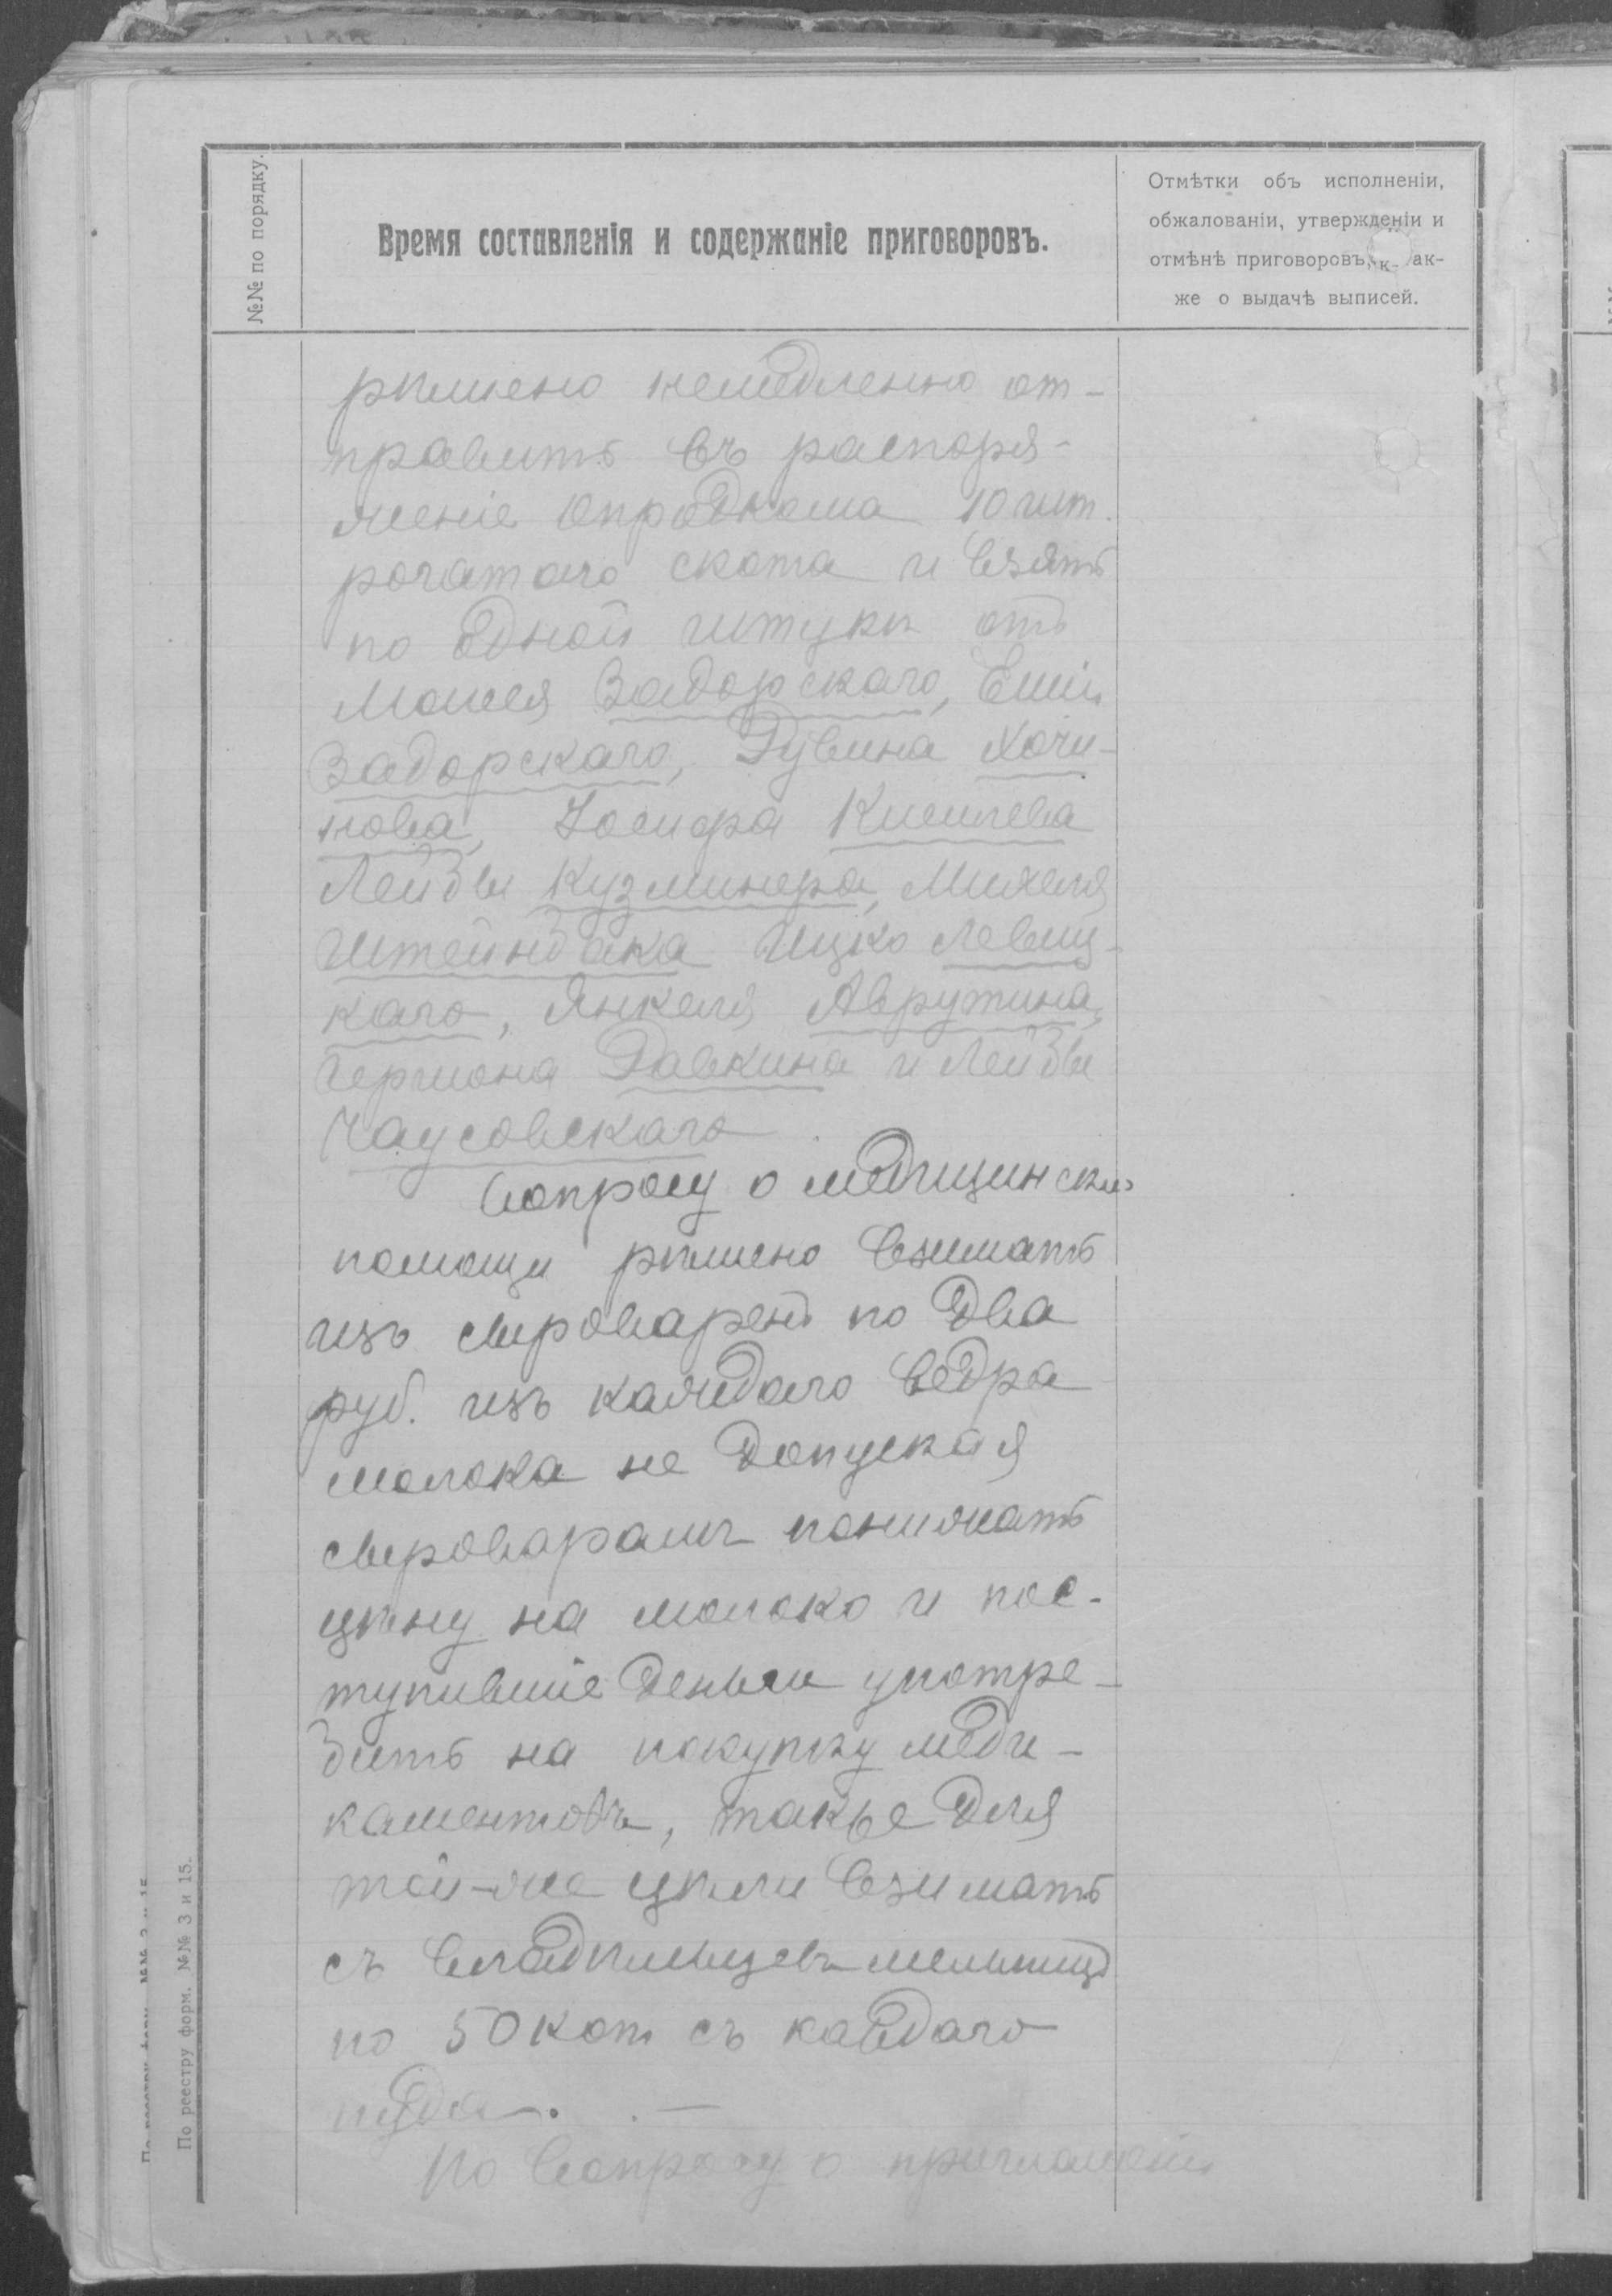 №№ по порядку.
Время составленія и содержаніе приговоровъ.
Отмѣтки объ исполненіи,
обжалованіи, утвержденіи и
отмѣнѣ приговоровъ, ак-
же о выдачѣ выписей.
рѣшено немедленно от-
править въ распоря-
женіе Опродкома 10 шт.
рогатаго скота и взять
по одной штукѣ отъ
Моисея Задорскаго,
Задорскаго, Рувина Хочи-
нова, Іосифа Киселева
Лейбы Кузминера, Михеля
Штейнбака Ицко Левиц-
каго, Янкеля Аврутина,
Гершона Равкина и Лейбы
Чаусовскаго
Вопросу о медицинской
помощи рѣшено взимать
изъ сыроварень по два
руб. изъ каждаго ведра
молока не допуская
сыроварамъ понижать
цѣну на молоко и пос-
тупившіе деньги употре-
бить на покупку меди-
каментовъ, также для
той-же цѣли взимать
съ владѣльцевъ мельницъ
по 50 коп съ каждаго
пуда.
По вопросу о приглашеніи
По реестру форм. №№ 3 и 15.